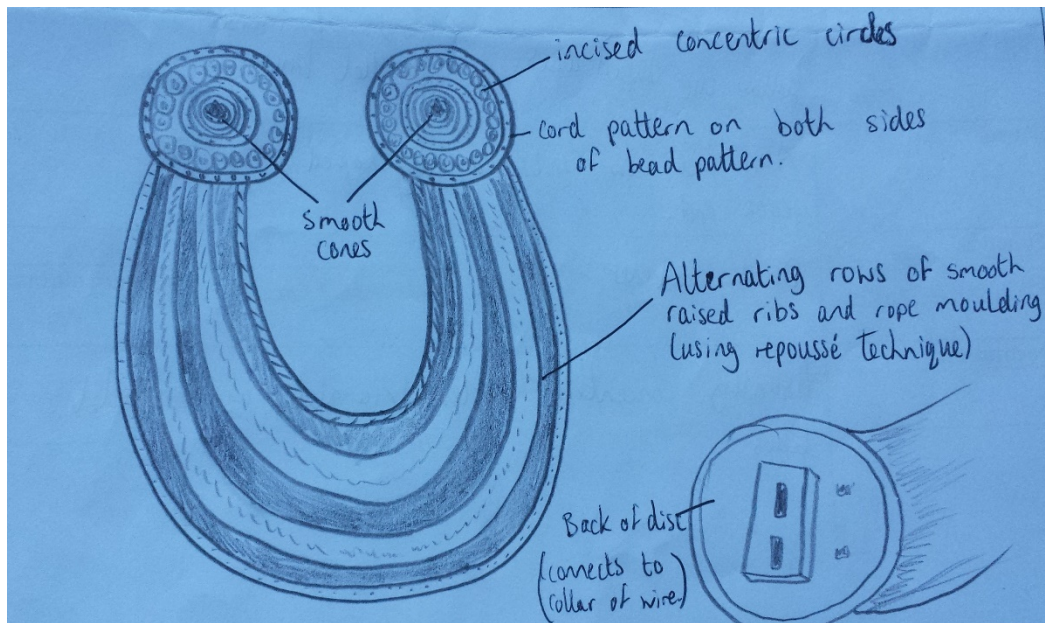 incised concentric circles
cord pattern on both sides
of bead pattern.
smooth
cones
Alternating rows of smooth
raised ribs and rope moulding
(using repoussé technique)
Back of disc
(connects to
collar of wire)